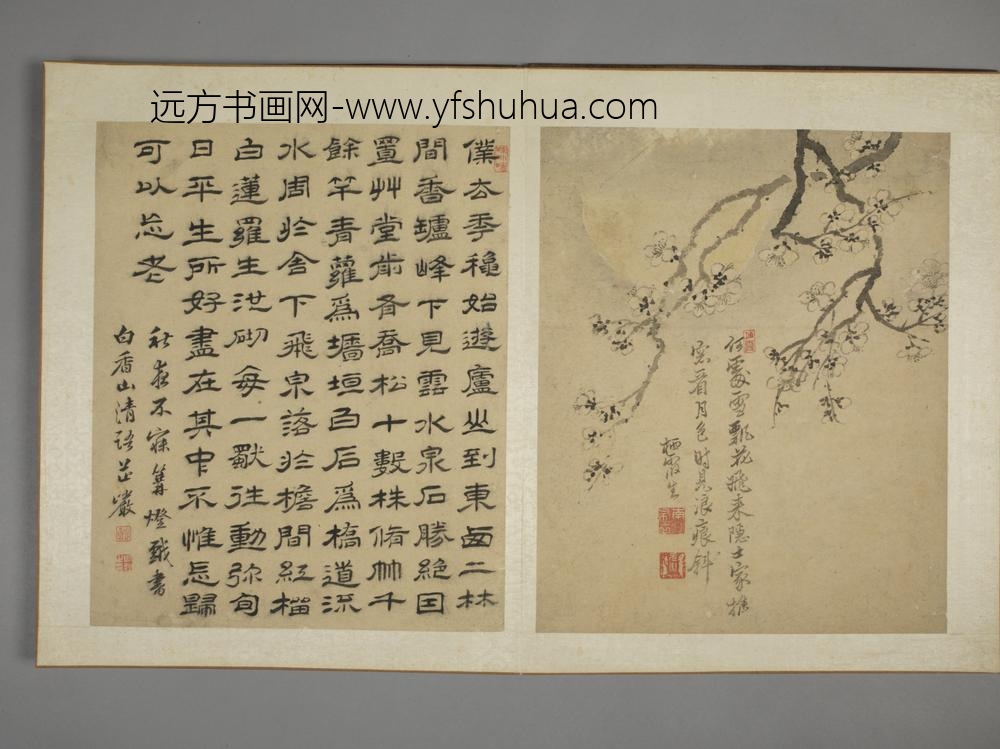 远方书画网-www.yfshuhua.com
何處雪飄花飛來隱士家推
窓看月色時見浪痕斜
栖霞生
僕去季穐始遊廬山到東西二林
間香罏峰下見雲水泉石勝絕因
置艸堂前有喬松十數株脩竹千
餘竿青蘿爲墻垣白石爲橋道流
水周於舍下飛泉落於檐間紅榴
白蓮羅生池砌每一獨往動弥旬
日平生所好盡在其中不惟忘歸
可以忘老
秋夜不寐篝燈戲書
白香山清語芷巖